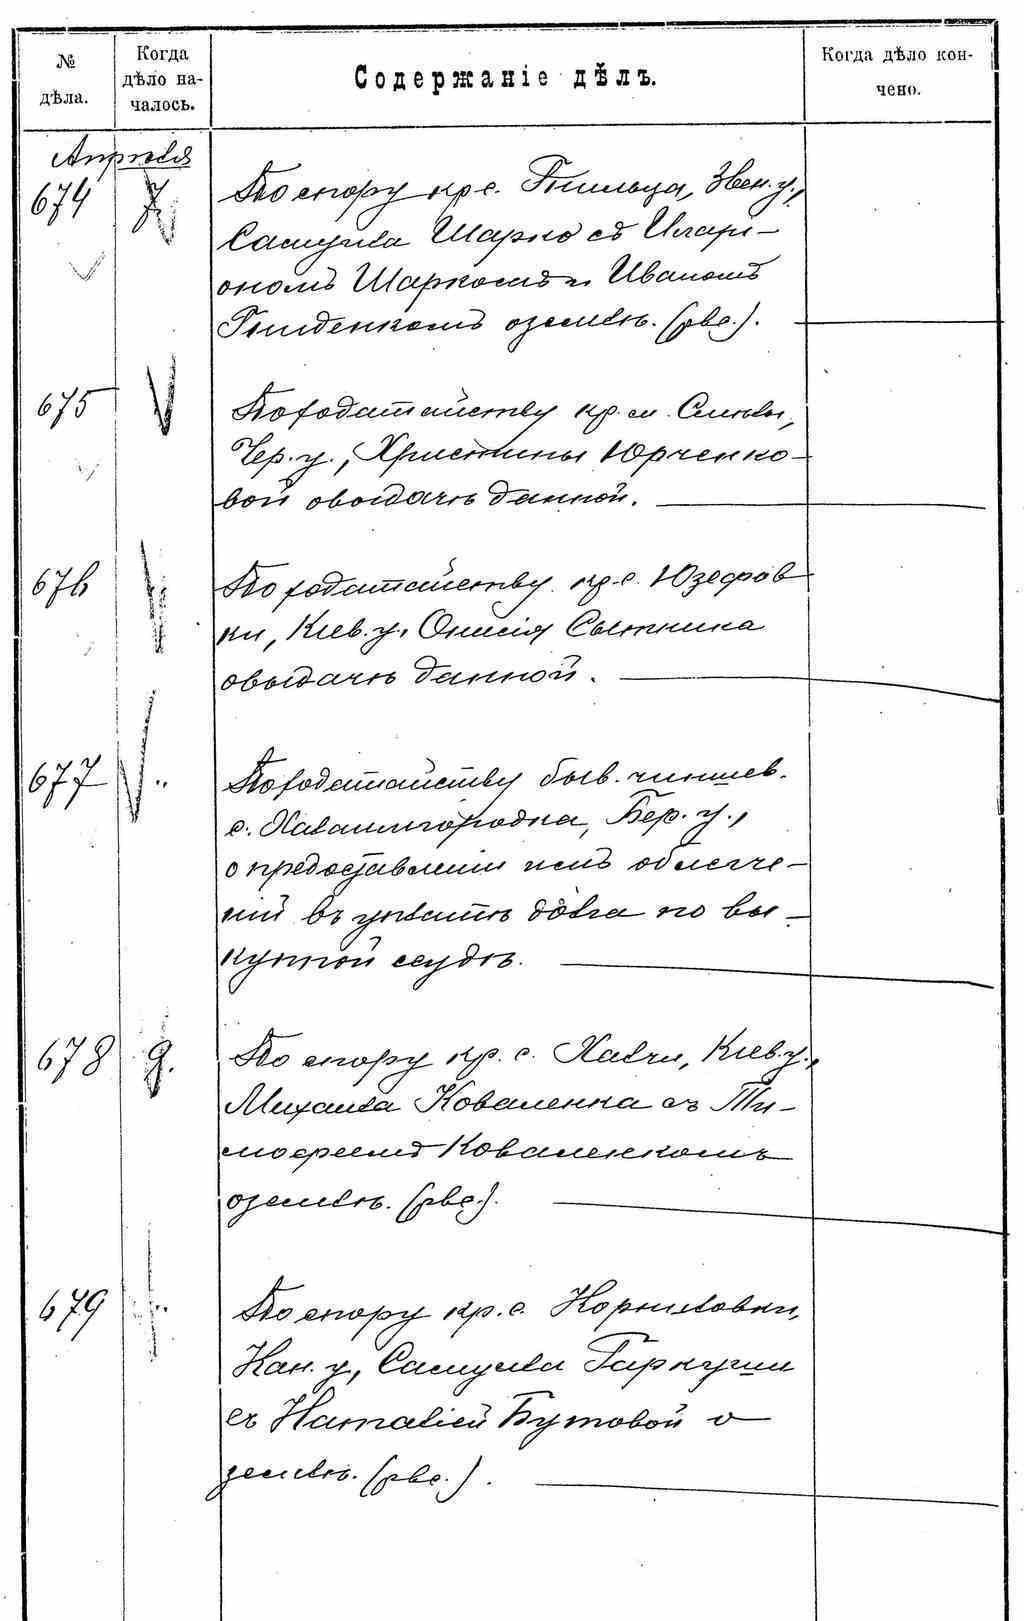 № дѣла.
Когда дѣло на-
чалось.
Содержаніе дѣлъ.
Когда дѣло кон-
чено.
Апрѣля
674 7
По спору кр. с. Гнильца, Звен. у.,
Самуила Шарко съ Илари-
ономъ Шаркомъ и Иваномъ
Гниденкомъ о землѣ. (рве.).
675
По ходатайству кр. м. Смѣлы,
Чер. у., Христины Юрченко-
вой о выдачѣ данной.
676
По ходатайству кр. с. Юзефов
ки, Кіев. у., Онисія Сытника
о выдачѣ данной.
677 „
По ходатайству быв. чиншев.
с. Хабаишгородка, Бер. у.,
о предоставленіи имъ облегче-
ній въ уплатѣ долга по вы-
купной ссудѣ.
678 9.
По спору кр. с. Хабчи, Кіев. у.,
Михаила Коваленка съ Ти-
мофеемъ Коваленкомъ
о землѣ. (рве.).
679 „
По спору кр. с. Корниловки,
Кан. у., Самуила Гаркуши
съ Наталіей Бутовой о
землѣ. (рве.).